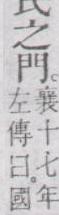 之門。
襄十七年
左傳曰。國